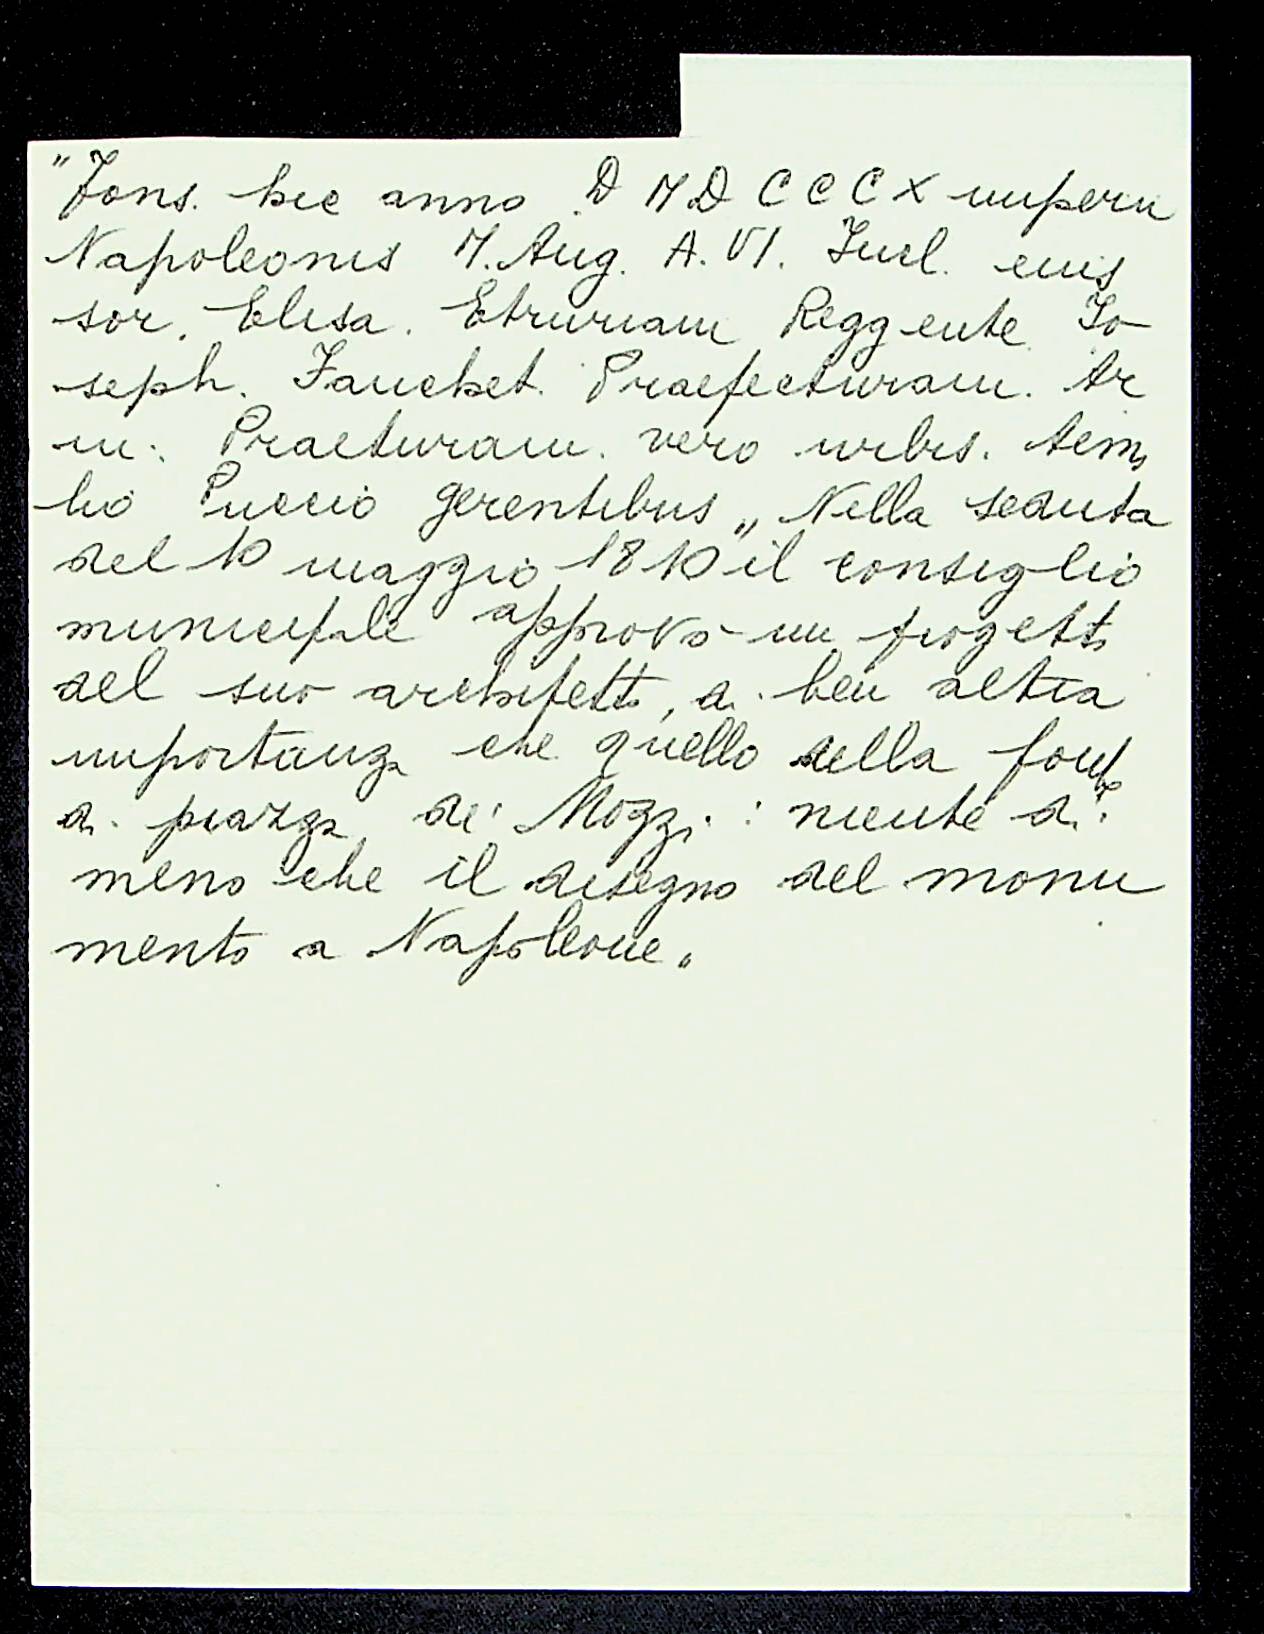 "Fons. hic anno D MDCCCX imperii
Napoleonis M. Aug. A. VI. Incl. eius
sor. Elisa. Etruriam Reggente Jo
seph. Fauchet. Praefecturam. Ar
ni: Praeturam. vero urbis. Aemi
lio Puccio gerentibus „ Nella seduta
del 10 maggio 1810 il consiglio
municipale approvò un progetto
del suo architetto, di ben altra
importanza che quello della fonte
di piazza de' Mozzi: niente di
meno che il disegno del monu
mento a Napoleone.